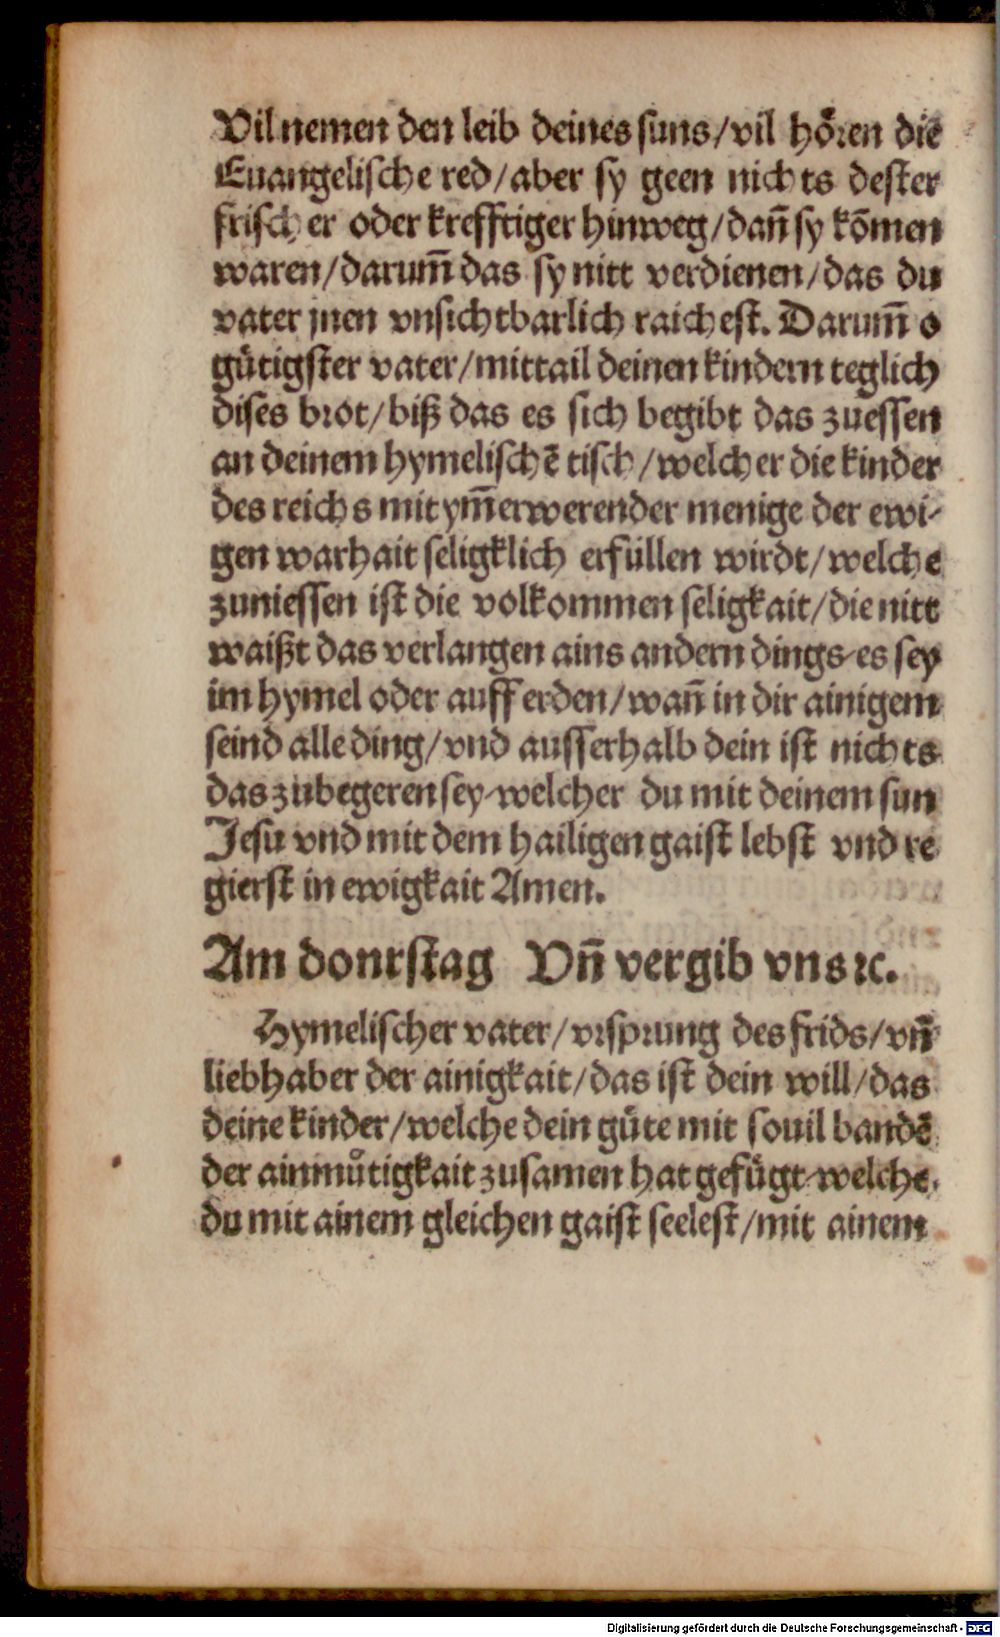 Vil nemen den leib deines suns/vil hoͤren die
Euangelische red/aber sy geen nichts dester
frischer oder krefftiger hinweg/dañ sy kõmen
waren/darum̃ das sy nitt verdienen/das du
vater jnen vnsichtbarlich raichest. Darum̃ o
guͤtigster vater/mittail deinen kindern teglich
dises brot/biß das es sich begibt das zuessen
an deinem hymelischẽ tisch/welcher die kinder
des reichs mit ym̃erwerender menige der ewi-
gen warhait seligklich erfüllen wirdt/welche
zuniessen ist die volkommen seligkait/die nitt
waißt das verlangen ains andern dings/es sey
im hymel oder auff erden/wañ in dir ainigem
seind alle ding/vnd ausserhalb dein ist nichts
das zubegeren sey/welcher du mit deinem sun
Jesu vnd mit dem hailigen gaist lebst vnd re
gierst in ewigkait Amen.
Am donrstag Vñ vergib vns ꝛc.
Hymelischer vater/vrsprung des frids/vñ
liebhaber der ainigkait/das ist dein will/das
deine kinder/welche dein guͤte mit souil bandẽ
der ainmuͦtigkait zusamen hat gefuͤgt/welche
du mit ainem gleichen gaist seelest/mit ainem
Digitalisierung gefördert durch die Deutsche Forschungsgemeinschaft - DFG